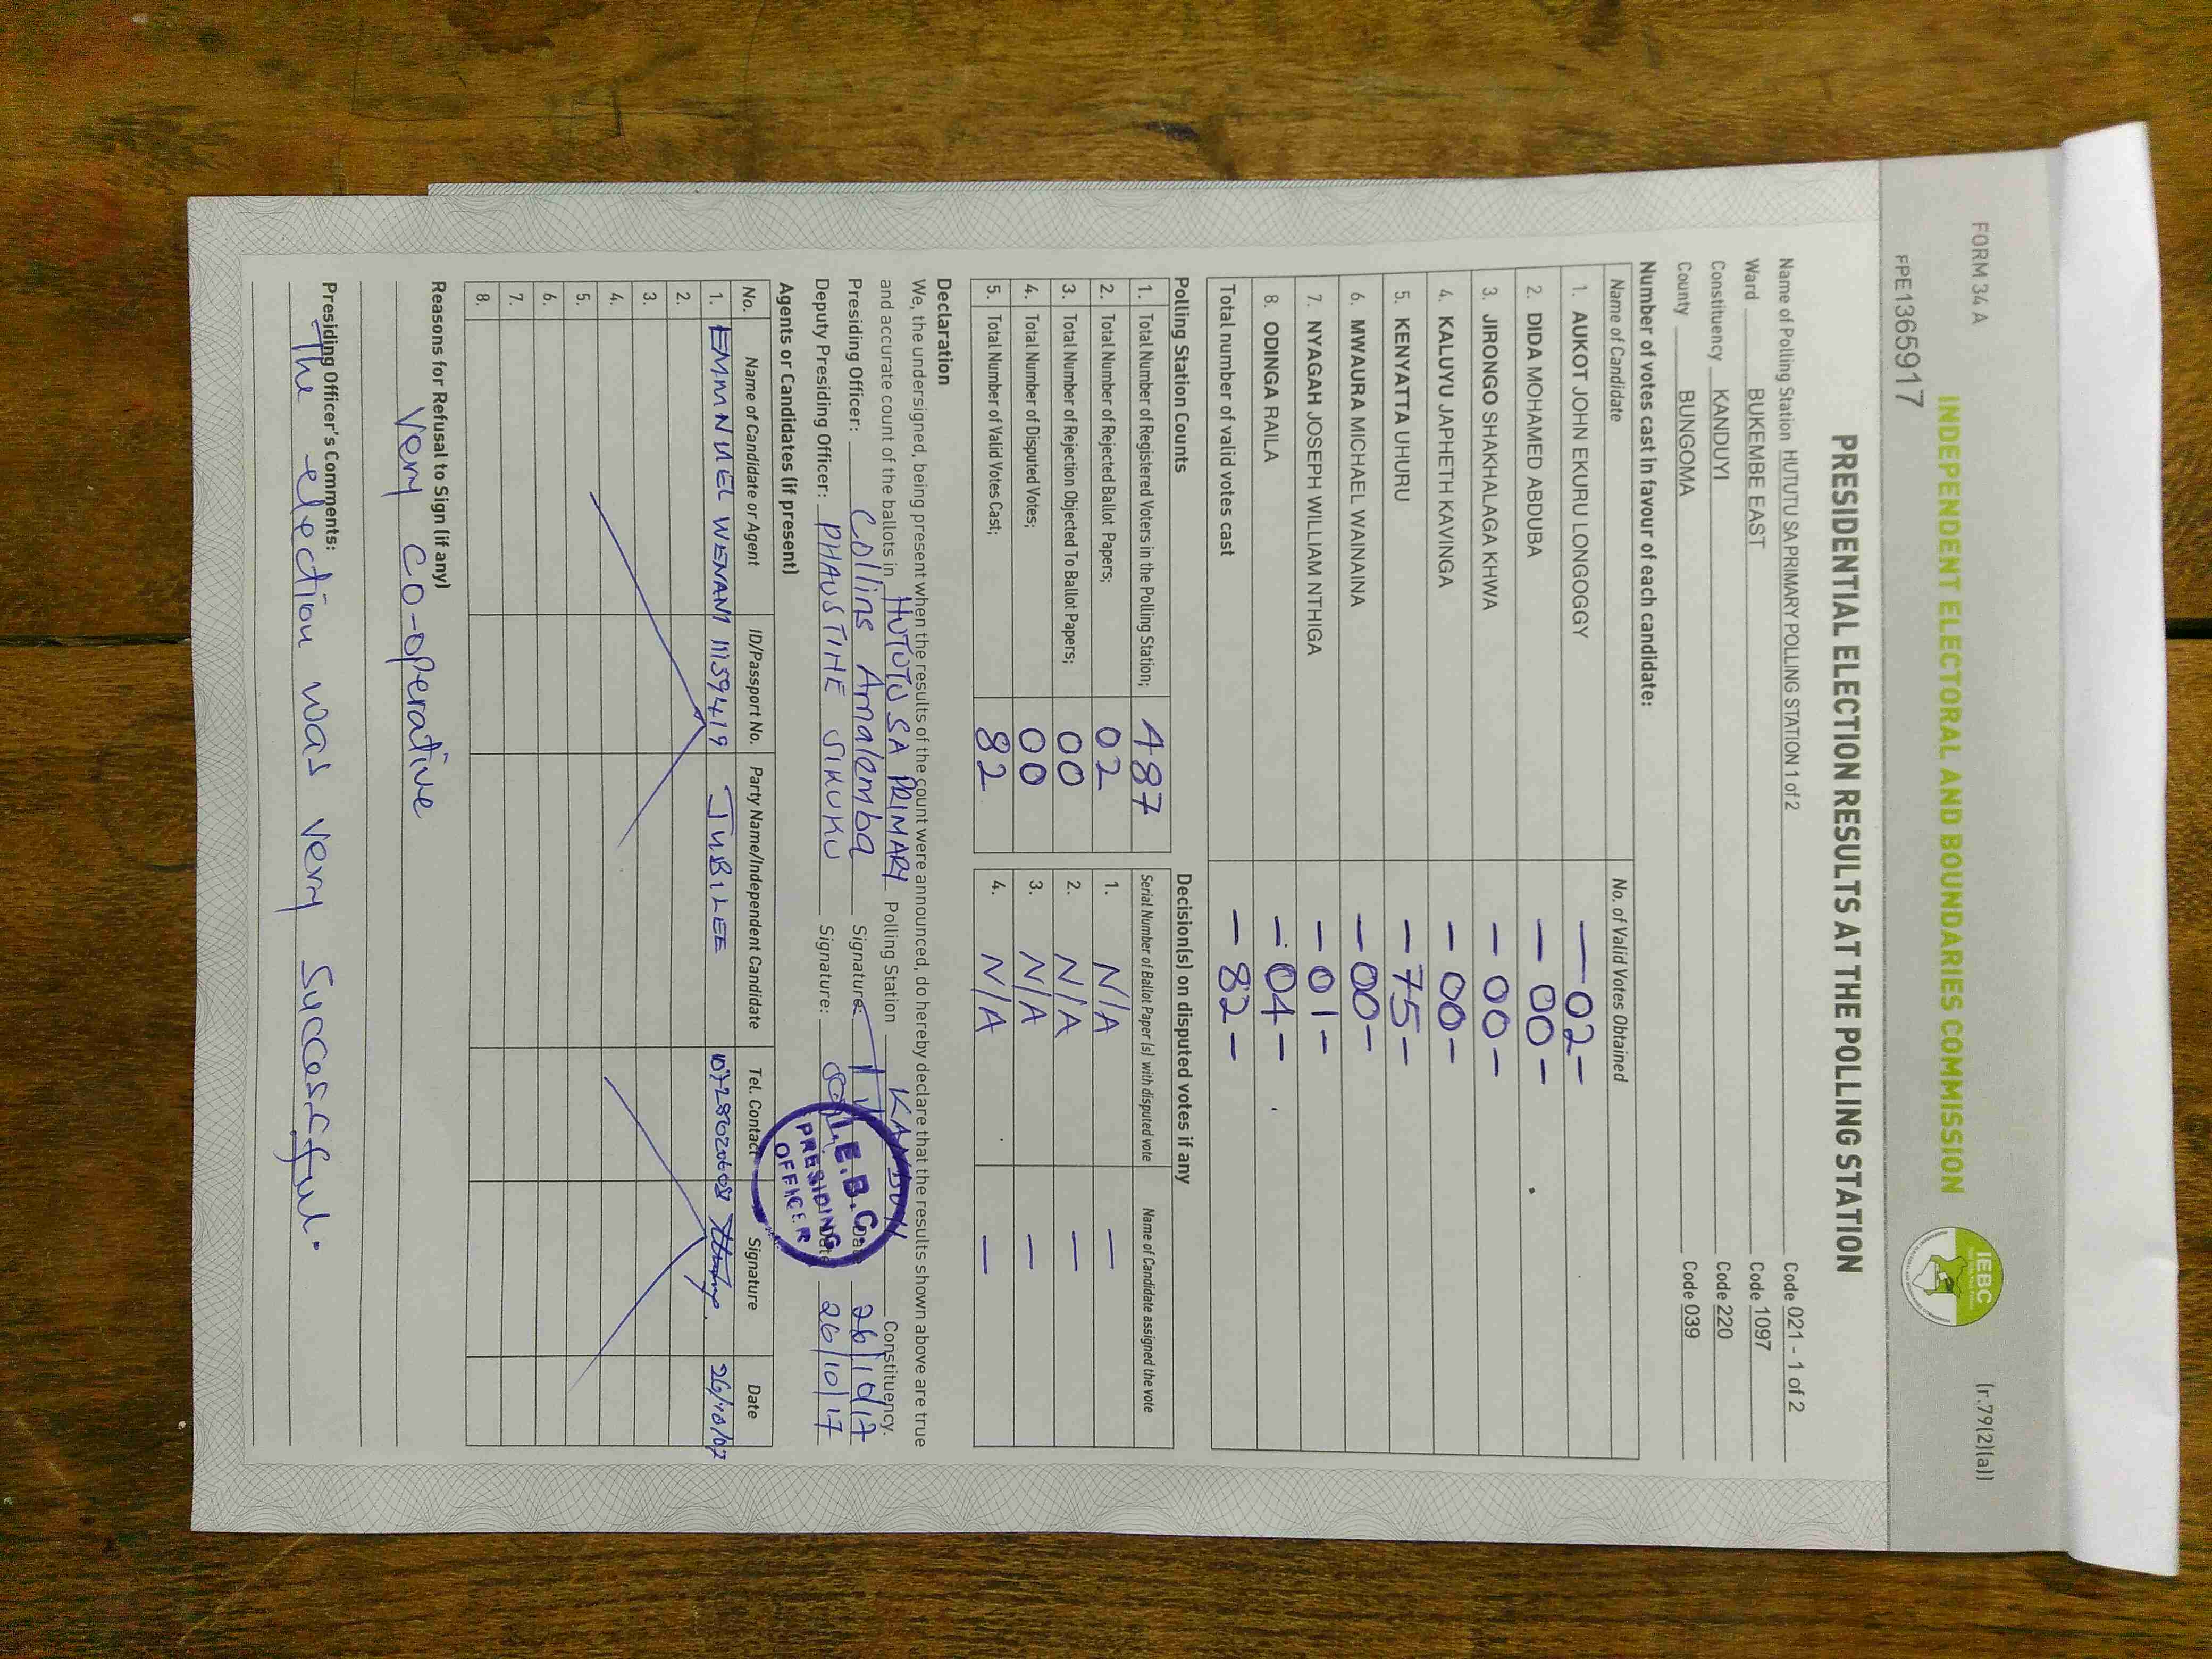 FORM 34 A
(r.79(2)(a))
INDEPENDENT ELECTORAL AND BOUNDARIES COMMISSION
IEBC
FPE1365917
PRESIDENTIAL ELECTION RESULTS AT THE POLLING STATION
Name of Polling Station HUTUTU SA PRIMARY POLLING STATION 1 of 2 Code 021 - 1 of 2
Ward BUKEMBE EAST Code 1097
Constituency KANDUYI Code 220
County BUNGOMA Code 039
Number of votes cast in favour of each candidate:
Name of Candidate No. of Valid Votes Obtained
1. AUKOT JOHN EKURU LONGOGGY —02—
2. DIDA MOHAMED ABDUBA — 00 —
3. JIRONGO SHAKHALAGA KHWA — 00 —
4. KALUYU JAPHETH KAVINGA — 00 —
5. KENYATTA UHURU — 75 —
6. MWAURA MICHAEL WAINAINA — 00 —
7. NYAGAH JOSEPH WILLIAM NTHIGA — 01 —
8. ODINGA RAILA — 04 —
Total number of valid votes cast — 82 —
Polling Station Counts
1. Total Number of Registered Voters in the Polling Station; 487
2. Total Number of Rejected Ballot Papers; 02
3. Total Number of Rejection Objected To Ballot Papers; 00
4. Total Number of Disputed Votes; 00
5. Total Number of Valid Votes Cast; 82
Decision(s) on disputed votes if any
Serial Number of Ballot Paper (s) with disputed vote Name of Candidate assigned the vote
1. N/A —
2. N/A —
3. N/A —
4. N/A —
Declaration
We, the undersigned, being present when the results of the count were announced, do hereby declare that the results shown above are true
and accurate count of the ballots in HUTUTU SA PRIMARY Polling Station KANDUYI Constituency.
Presiding Officer: Collins Amalemba Signature: Date 26/10/17
Deputy Presiding Officer: PHAUSTINE SIKUKU Signature: Date 26/10/17
I.E.B.C.
PRESIDING
OFFICER
Agents or Candidates (if present)
No. Name of Candidate or Agent ID/Passport No. Party Name/Independent Candidate Tel. Contact Signature Date
1. EMMNUEL WENANI 11159419 JUBILEE
2.
3.
4.
5.
6.
7.
8.
Reasons for Refusal to Sign (if any)
Very co-operative
Presiding Officer's Comments:
The election was very successful.